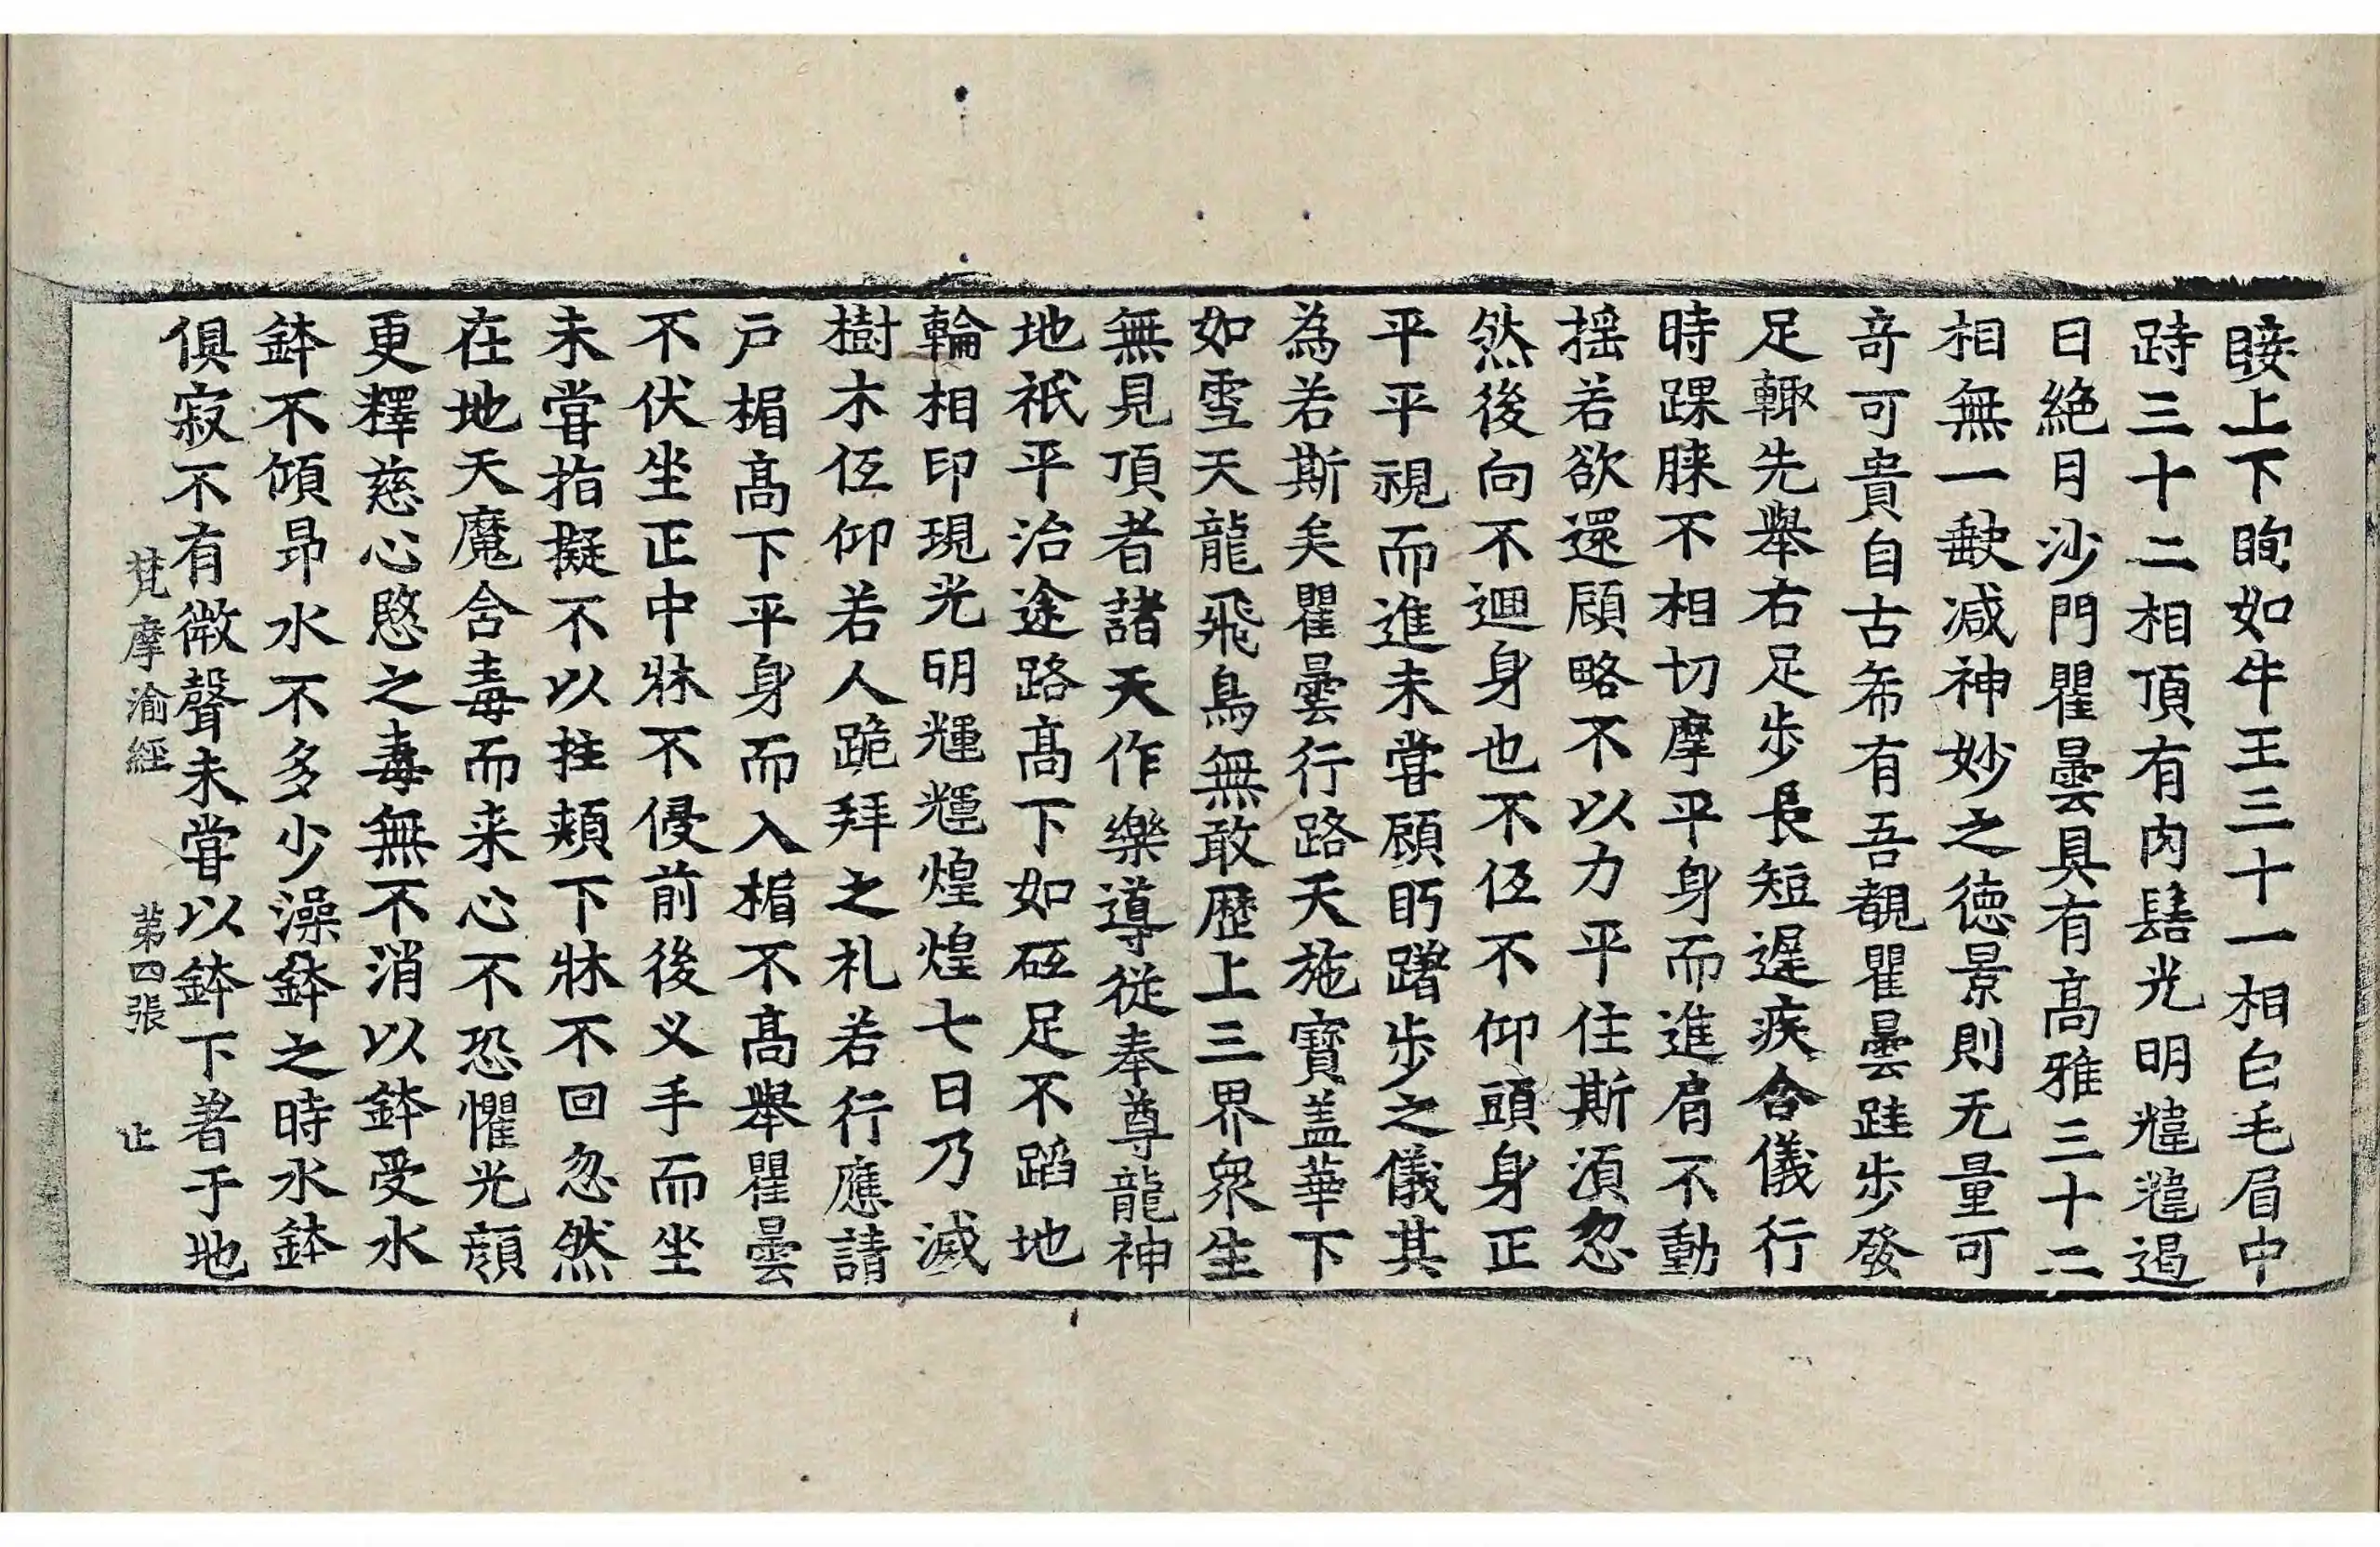 睫上下眴如牛王三十一相白毛眉中
跱三十二相頂有肉髻光明煒煒遏
日絕月沙門瞿曇具有髙雅三十二
相無一缺减神妙之德景則无量可
竒可貴自古希有吾覩瞿曇跬步發
足輙先舉右足步長短遲疾合儀行
時踝膝不相切摩平身而進肩不動
揺若欲還顧略不以力平住斯須忽
然後向不迴身也不低不仰頭身正
平平視而進未甞顧眄躇步之儀其
為若斯矣瞿曇行路天施寶盖華下
如雪天龍飛鳥無敢歷上三界衆生
無見頂者諸天作樂導從奉尊龍神
地祇平治途路髙下如砥足不蹈地
輪相印現光明輝輝煌煌七日乃滅
樹木低仰若人跪拜之礼若行應請
戶楣髙下平身而入楣不髙舉瞿曇
不伏坐正中牀不侵前後义手而坐
未甞指擬不以拄頬下牀不回忽然
在地天魔含毒而来心不恐懼光顔
更釋慈心愍之毒無不消以鉢受水
鉢不傾昻水不多少澡鉢之時水鉢
俱寂不有微聲未甞以鉢下著于地
梵摩渝經　第四張　止